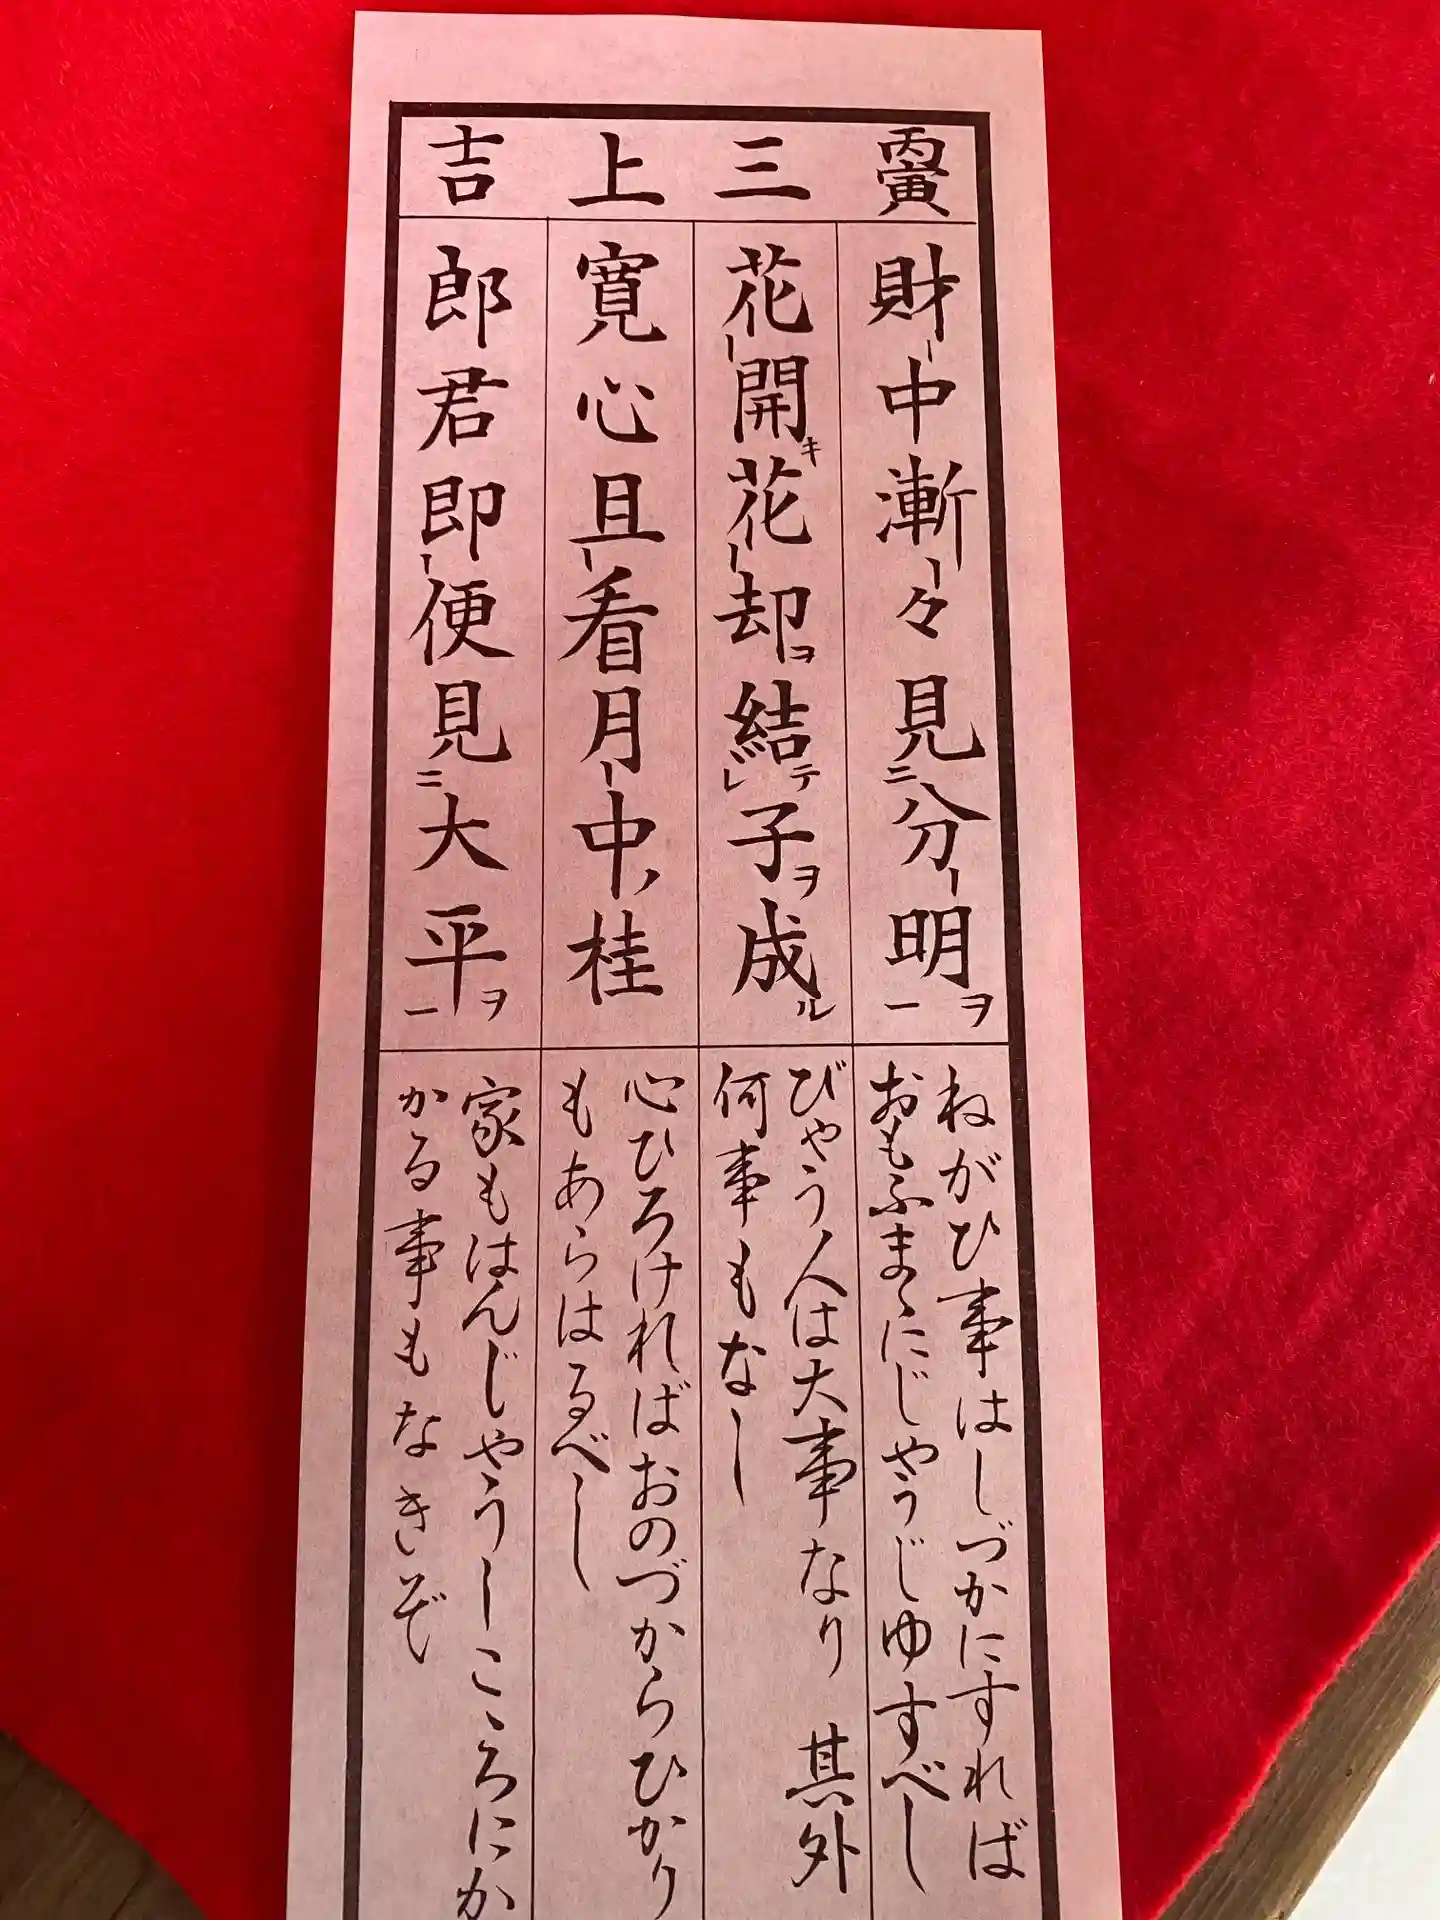 丙寅 三 上 吉
財中漸々見二分明ヲ一
ねがひ事はしづかにすれば
おもふまゝにじやうじゆすべし
花開キ花却ヲ結レテ子ヲ成ル
びやう人は大事なり 其外
何事もなし
寛心且看月中ノ桂
心ひろければおのづからひかり
もあらはるべし
郎君即便見二大平ヲ一
家もはんじやうしこゝろにか
かる事もなきぞ